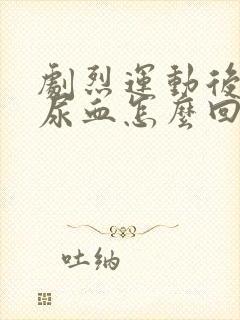 劇烈運動後
尿血怎麼回
吐納